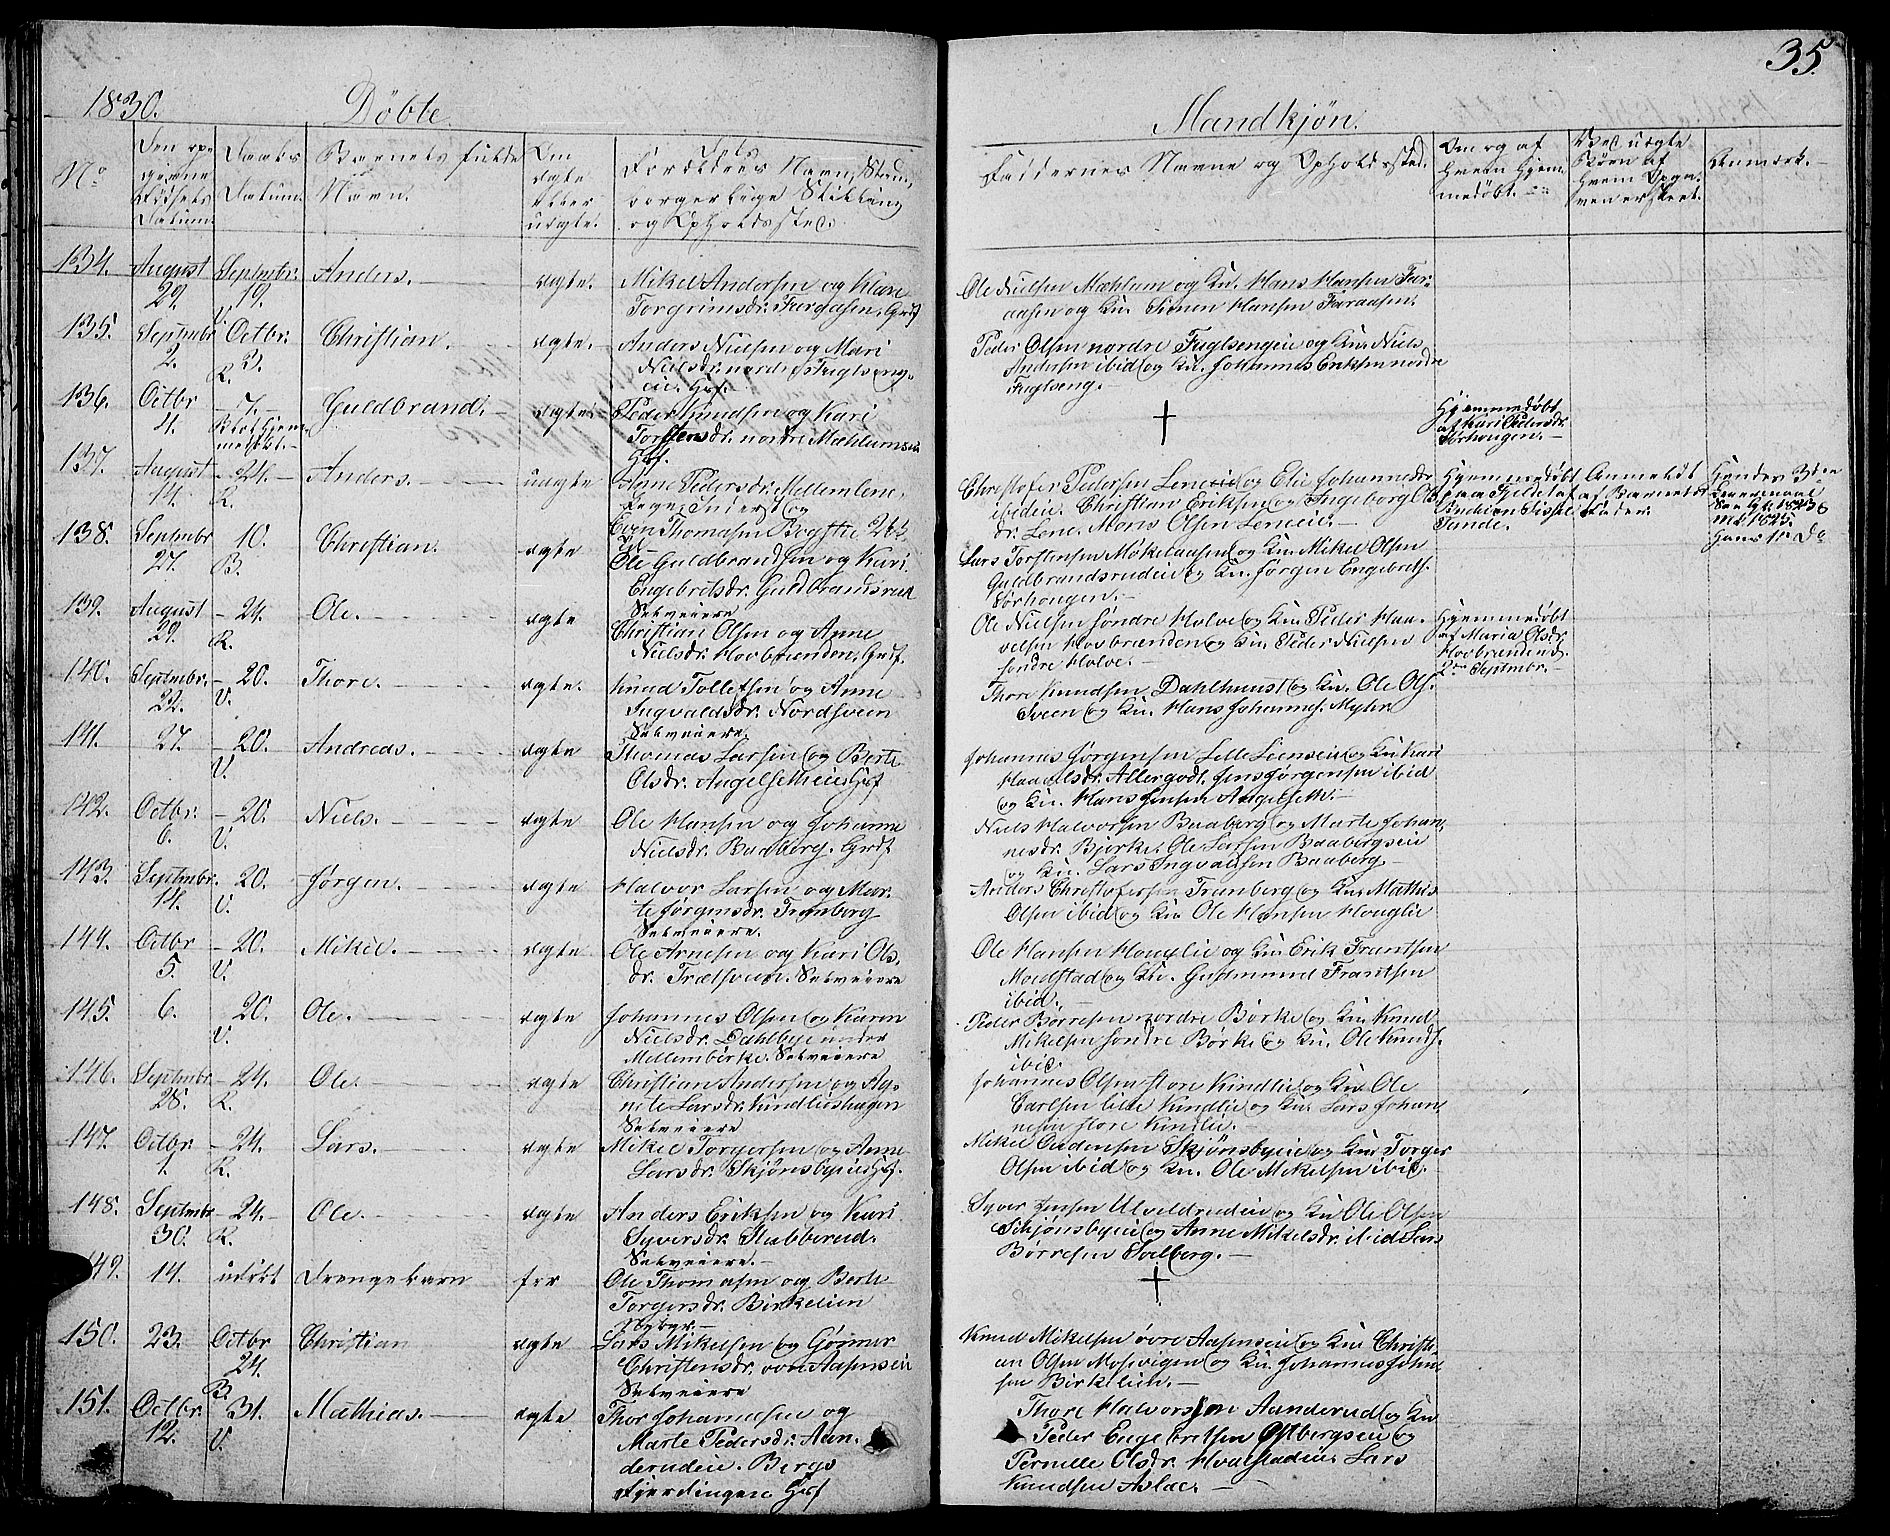 35.
1830. Döbte Mandkjön.
No
Den op-
givne
Födsels
Datum.
Daabs
Datum.
Barnets fulde
Navn.
Om
ægte
eller
uægte.
Forældres Navn, Stand,
borgerlige Stilling
og Opholdssted.
Faddernes Navne og Opholdssted.
Om og af
hvem hjem-
medöbt.
Ved uægte
Börn af
hvem Opgi-
ven er skeet.
Anmærk.
134. August 29. Septmbr. 19. V. Anders. ægte.
Mikel Andersen og Kari
Torgrimsdr. Furaasen, Hrsf
Ole Nielsen Mæhlum og Kn. Hans Hansen Fur-
aasen og Kn. Simen Hansen Furaasen.
135. Septmbr 2. Octbr. 3. R. Christian. ægte.
Anders Nielsen og Mari
Nielsdr. nordre Fuglseng-
eie. Hsf.
Peder Olsen nordre Fuglsengeie og Kn. Niels
Andersen ibid og Kn. Johannes Eriksen nordre
Fuglseng.
136. Octbr 4. 7. Blot hjem-
medöbt. Guldbrand. ægte
Peder Knudsen og Kari
Torstensdr. nordre Mæhlumseie
Hsf.
Hjemmedöbt
af Kari Pedersdr.
Sörhougen.
137. August 14. 24. R. Anders. uægte
Anne Pedersdr. Mellemlene,
Pige, Inderst og
Even Thomasen
Christofer Pedersen Leneeie og Elie Johannesdr
ibideie. Christian Eriksen og Ingeborg Ols-
dr. Lene. Mons Olsen Leneeie.
Hjemmedöbt
Anmeldt
af Barnets
Fader.
138. Septmbr 27. 10. B. Christian. ægte
Ole Guldbrandsen og Kari
Engebretsdr. Guldbrandsrud
Selveiere
Lars Torstensen Mökelaasen og Kn. Mikel Olsen
Guldbrandsrudeie og Kn. Jörgen Engebrets.
Sörhougen.
139. August 29. 24. R. Ole. ægte
Christian Olsen og Anne
Nielsdr. Hovbrænden, Hrsf.
Ole Nielsen söndre Holve og Kn. Peder Haa-
velsen Hovbrænden og Kn. Peder Nielsen
söndre Holve.
Hjemmedöbt
af Maria Olsdr.
Hovbrænden d.
2den Septmbr.
140. Septmbr. 22. 20. V. Thore. ægte.
Knud Tollefsen og Anne
Ingvaldsdr. Nordsveen
Selveiere.
Thore Knudsen Dahlhuust og Kn. Ole Ols.
Sveen og Kn. Hans Johannes. Myhr
141. 27. 20. V. Andreas. ægte
Thomas Larsen og Berte
Olsdr. Angelsetheie Hsf
Johannes Jörgensen Lille Lienseie og Kn. Kari
Haavelsdr. Allergodt. Jens Jörgensen ibid
og Kn. Hans Jensen Angelseth.
142. Octbr. 6. 20. V. Niels. ægte
Ole Hansen og Johanne
Nielsdr. Baaberg. Grdf
Niels Halvorsen Baaberg og Marte Johan-
nesdr. Bjerke. Ole Larsen Baabergseie
og Kn. Lars Ingvaldsen Baaberg
143. Septmbr. 14. 20. V. Jörgen. ægte
Halvor Larsen og Mar-
te Jörgensdr. Tranberg
Selveiere.
Anders Christofersen Tranberg og Kn. Mathis
Olsen ibid og Kn Ole Hansen Houglie
144. Octbr 5. 20. V. Mikel. ægte
Ole Arnesen og Kari Ols-
dr. Trælsveen. Selveiere
Ole Hansen Houglie og Kn. Erik Frantsen
Moestad og Kn. Gudmund Frantsen
ibid.
145. 6. 20. V. Ole. ægte
Johannes Olsen og Karen
Nielsdr. Dahlbye under
Mellembirke. Selveiere
Peder Börresen nordre Börke og Kn. Knud
Mikelsen söndre Börke og Kn. Ole Knuds.
ibid.
146. Septmbr. 28. 24. R. Ole. ægte
Christian Andersen og Ag-
nete Larsdr. Kindlieshagen
Selveiere
Johannes Olsen store Kindlie og Kn. Ole
Carlsen lille Kindlie og Kn. Lars Johan-
nesen store Kindlie.
147. Octbr 1. 24. R. Lars. ægte
Mikel Torgersen og Anne
Larsdr. Skjönsbyeie Hsf.
Mikel Oudensen Skjönsbyeie og Kn. Torger
Olsen ibid og Kn. Ole Mikelsen ibid.
148. Septmbr 30. 24. R. Ole. ægte
Anders Eriksen og Kari
Syversdr. Stubberud.
Selveiere.
Syver Jensen Ulveldrudeie og Kn. Ole Olsen
Schjönsbyeie og Anne Mikelsdr. ibid Lars
Börresen Soelberg.
149. 14. udöbt Drengebarn for
Ole Thomasen og Berte
Torgersdr. Birkelien
150. 23. Octbr 24. B. Christian ægte
Lars Mikelsen og Gönner
Christensdr. övre Aasenseie
Selveiere
Knud Mikelsen övre Aasenseie og Kn. Christi-
an Olsen Mosevigen og Kn. Johannes Johan-
sen Birkelien.
151. Octbr. 12. 31. V. Mathias. ægte
Thor Johannesen og
Marte Pedersdr. Aan-
derudeie. Bergs
Fjerdingen Hsf
Thore Halvorsen Aanderud og Kn.
Peder Engebretsen Ostbergseie og
Pernille Olsdr. Hvalstadeie. Lars
Knudsen Aslae.